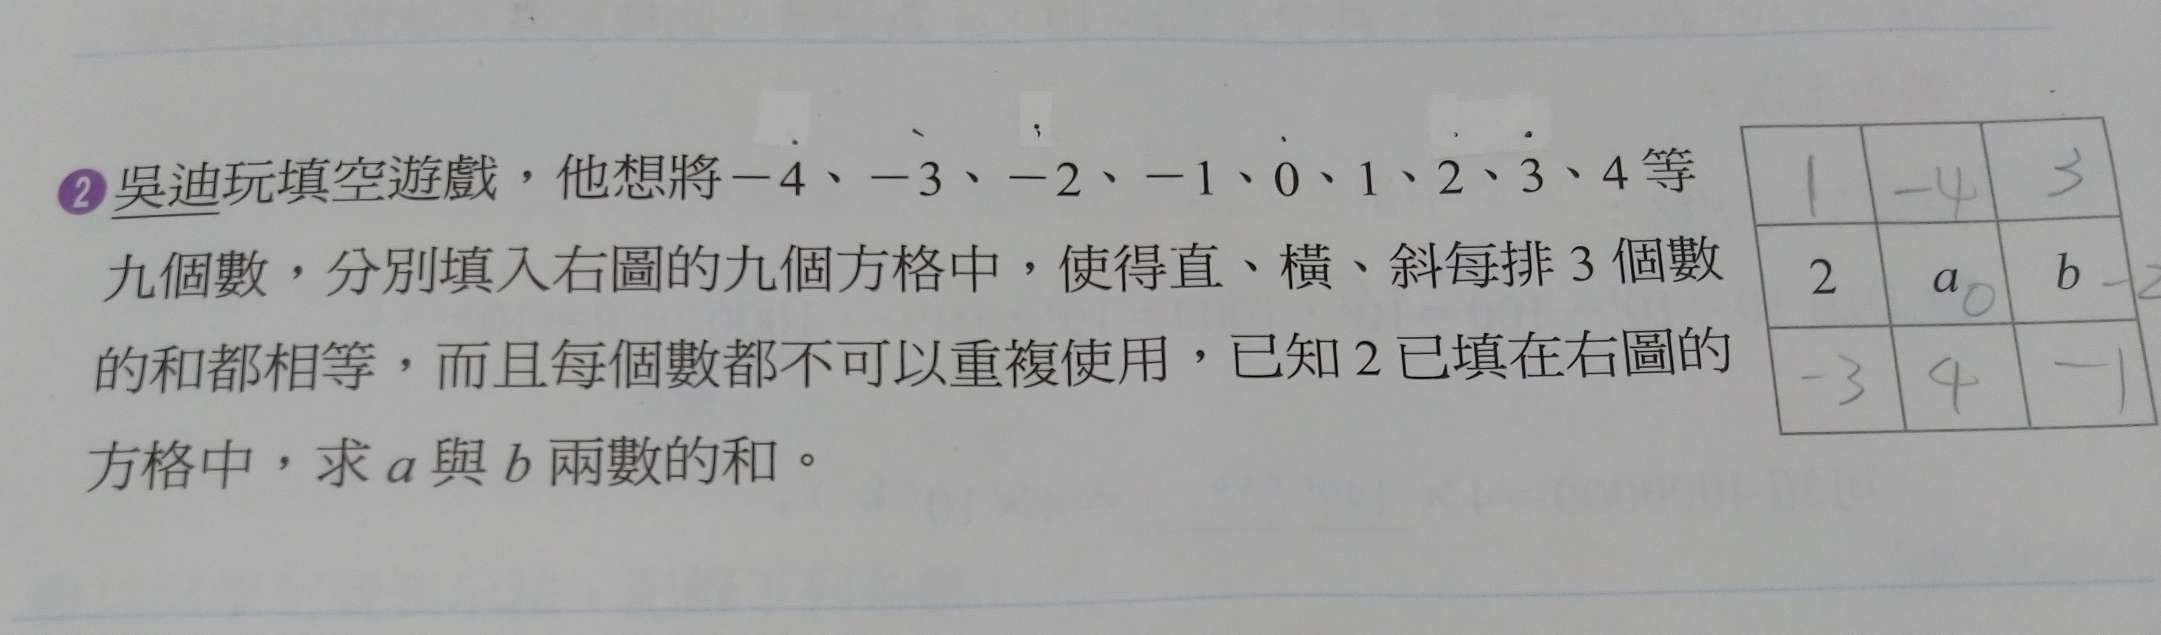 ❷吳迪玩填空遊戲,他想將－4、－3、－2、－1、0、1、2、3、4 等
九個數,分別填入右圖的九個方格中,使得直、橫、斜每排 3 個數
的和都相等,而且每個數都不可以重複使用,已知 2 已填在右圖的
方格中,求 a 與 b 兩數的和。
1 -4 3
2 a 0 b -2
-3 4 -1